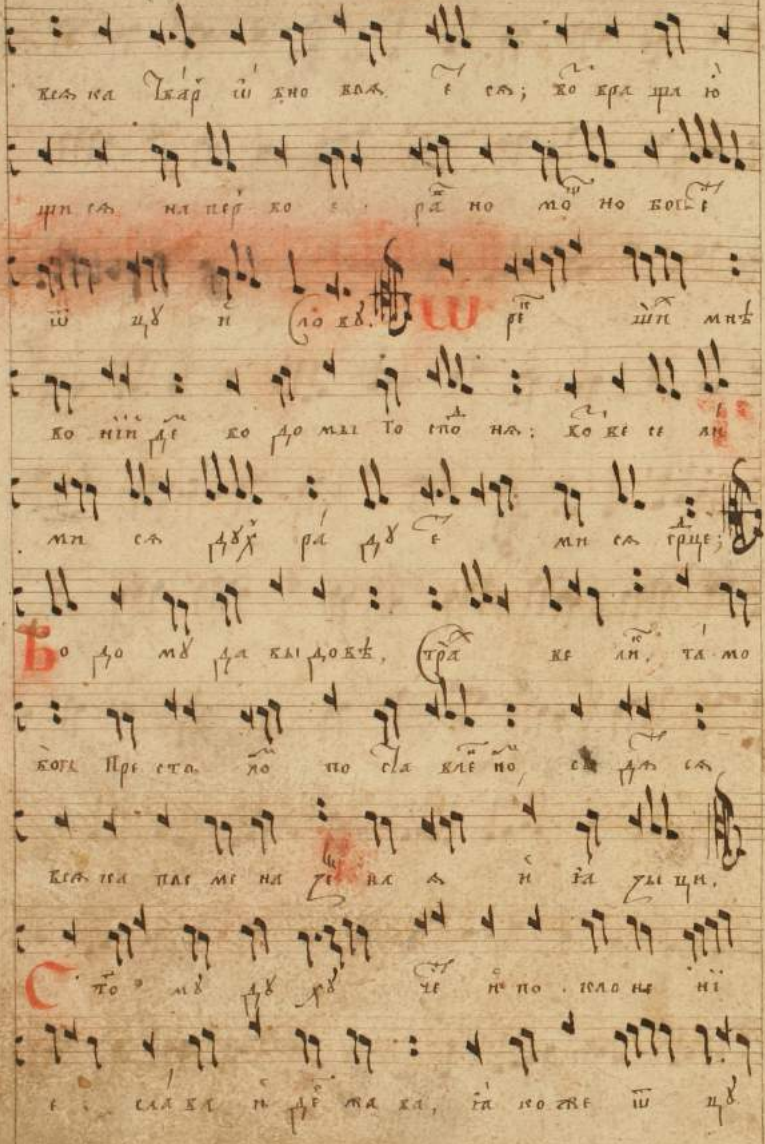 всѧ ка тварь ѡ бно влѧ е сѧ; во вра ща ю
щи сѧ на пер во е ра но мо но бог е
ѿ цу и сло ву. 
ѡ ре ши мнѣ
во и де во до мы го спо нѧ: во ве се ли
ми сѧ дух ра ду е ми сѧ срце;
В о до му да вы до вѣ, стра ве ли, та мо
бого пре сто ло по ста вле но, сѧ
всѧ ка пле ме на зе на ѧ и ꙗ зы ци,
С то му ду ху че и по кло не нї
е сла ва и де жа ва, ꙗ ко же ѿ цу